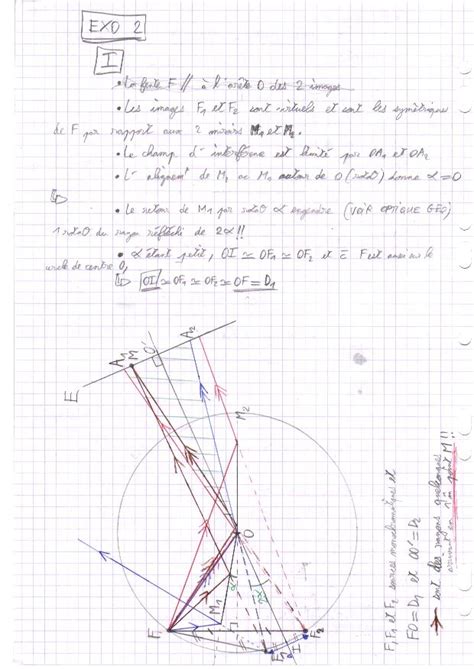 EXO 2
I
• La fente F // à l'arête O des 2 images
• Les images F1 et F2 sont virtuels et sont les symétriques
de F par rapport aux 2 miroirs M1 et M2.
• Le champ d'interférence est limité par OA1 et OA2
• L' de M1 M2 autour de O (rotaO) donne α = 0
• Le retour de M1 par rotaO α engendre (VOIR OPTIQUE GEO)
1 rotaO du rayon réfléchi de 2α !!
• α étant petit, OI ≃ OF1 ≃ OF2 et F est aussi sur le
cercle de centre O,
OI ≃ OF1 ≃ OF2 ≃ OF = D1
A2
O'
M
A1
E
M2
O
α
M1
2α
F
F2
I
F1
F, F1 et F2 sources monochromatique et
FO = D1 et OO' = D2
→ sont des rayons quelconques
arrivant en un point M !!